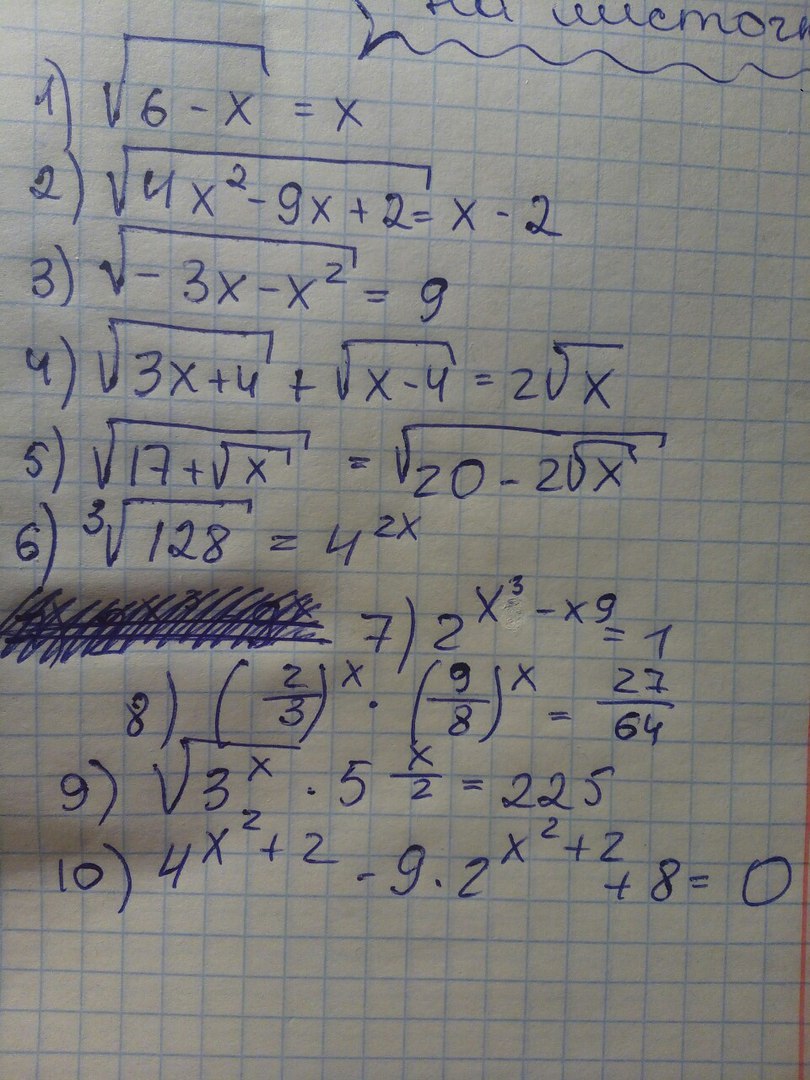 на листоч
1) √(6 - x) = x
2) √(4x² - 9x + 2) = x - 2
3) √(-3x - x²) = 9
4) √(3x+4) + √(x-4) = 2√x
5) √(17 + √x) = √(20 - 2√x)
6) ³√128 = 4^(2x)
7) 2^(x³ - x9) = 1
8) (2/3)^x · (9/8)^x = 27/64
9) √(3^x) · 5^(x/2) = 225
10) 4^(x²+2) - 9 · 2^(x²+2) + 8 = 0